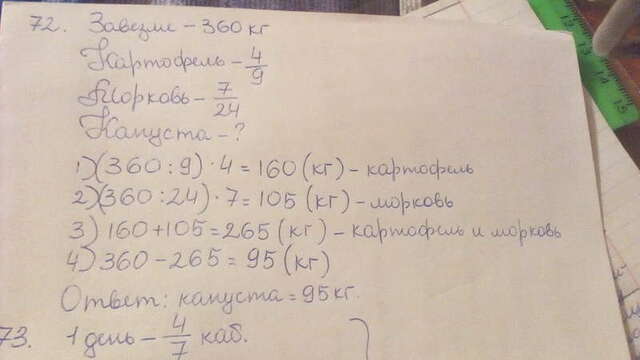 72. Завезме - 360 кг
Картофель - 4/9
Морковь - 7/24
Капуста - ?
1) (360 : 9) · 4 = 160 (кг) - картофель
2) (360 : 24) · 7 = 105 (кг) - морковь
3) 160 + 105 = 265 (кг) - картофель и морковь
4) 360 - 265 = 95 (кг)
Ответ: капуста = 95 кг.
73. 1 день - 4/7 каб.
13 14 15